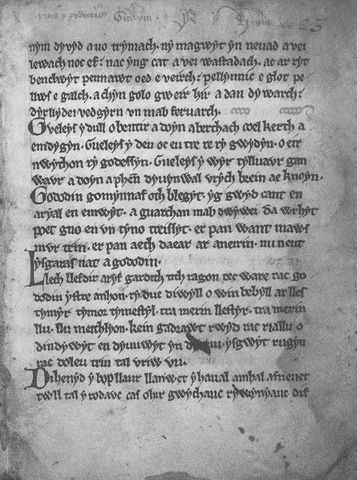 nym dyvyd a uo trymach. ny magwyt yn neuad a vei
lewach noc ef. nac yng cat a vei wastadach. ac ar ryt
benclwyt pennawt oed e veirch. pellynnic e glot pe-
llws e galch. a chyn golo gweir hir a dan dywarch.
dyrllydei vedgyrn un mab feruarch.
Gueleys y dull o bentir a doyn aberthach coel kerth a
emdygyn. Gueleys y deu oc eu tre re ry gwydyn. o eir
nwython ry godessyn. Gueleys y wyr tylluavr gan
wavr a doyn a phen dyuynwal vrych brein ae knoyn.
Gododin gomynnaf oth blegyt. yg gwyd cant en
aryal en emwyt. a guarchan mab dwywei da wrhyt
poet gno en vn tyno treissyt. er pan want maws
mvr trin. er pan aeth daear ar aneirin. nu neut
ysgaras nat a gododin.
Llech llefdir aryf gardith tith ragon tec ware rac go-
dodin ystre anhon. ry duc diwyll o win bebyll ar lles
tymyr. tymor tymestyl. tra merin llestyr. tra merin
llu. llu meithlyon. kein gadrawt rwyd rac riallu o
dindywyt en dyuuwyt yn ysgwyt rugyn
rac doleu trin tal vriw vu.
Dihenyd y bop llaur llanwet y haual amhal afneuet
twll tal y rodavc caf ohir gwychauc rywynyauc dif